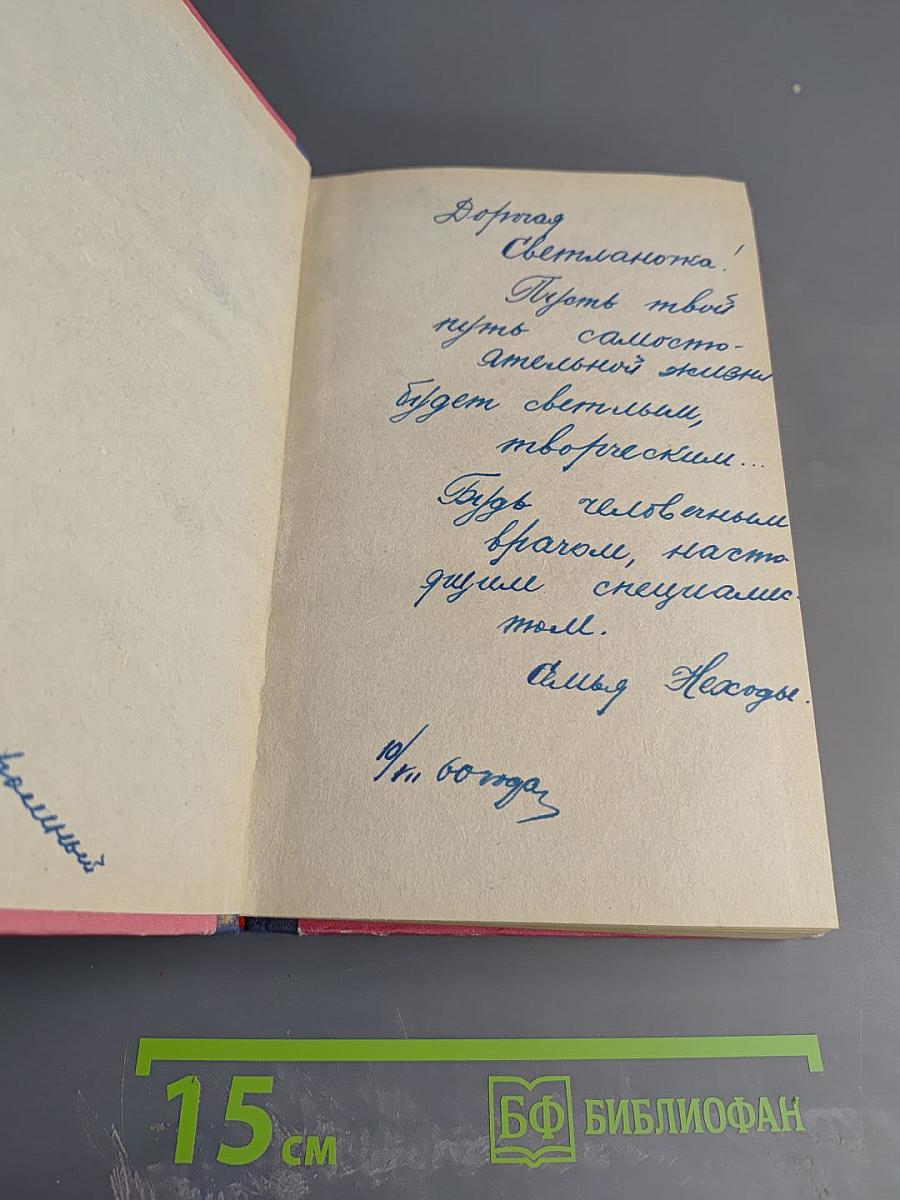 Дорогая
Светланочка!
Пусть твой
путь самосто-
ятельной жизни
будет светлым,
творческим...
Будь человечным
врачом, насто
ящим специалис-
том.
Семья Неходы.
10/VII 60 года
15 см
БФ БИБЛИОФАН